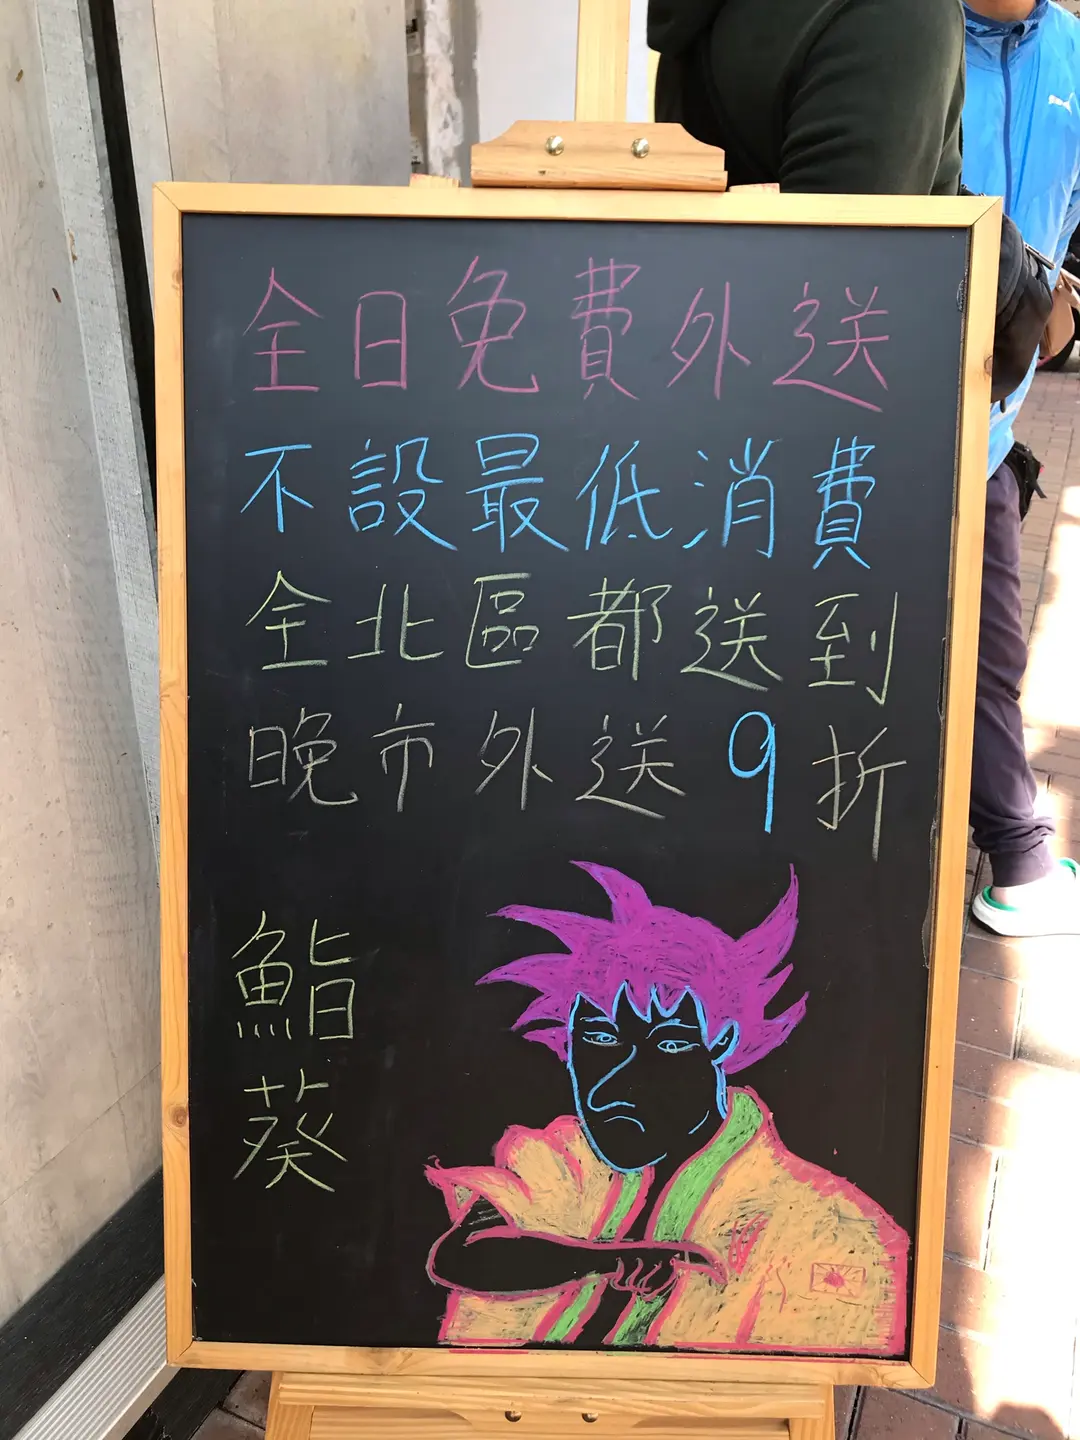 全日免費外送
不設最低消費
全北區都送到
晚市外送9折
鮨
葵